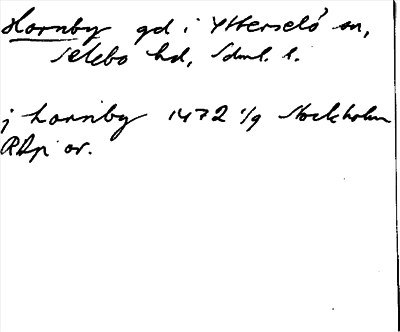 Hornby gd i Ytterselö sn,
Selebo hd, Sdml. l.
j hornby 1472 1/9 Stockholm
RAp or.